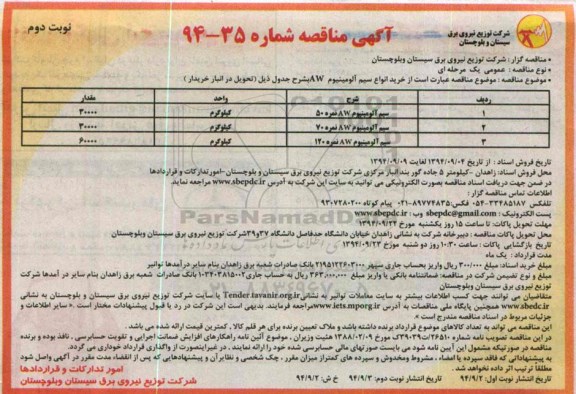 نوبت دوم
آگهی مناقصه شماره ۳۵-۹۴
شرکت توزیع نیروی برق
سیستان و بلوچستان
• مناقصه گزار : شرکت توزیع نیروی برق سیستان وبلوچستان
• نوع مناقصه : عمومی یک مرحله ای
• موضوع مناقصه : موضوع مناقصه عبارت است از خرید انواع سیم آلومینیوم AW بشرح جدول ذیل (تحویل در انبار خریدار)
ردیف شرح واحد مقدار
۱ سیم آلومینیوم AW نمره ۵۰ کیلوگرم ۳۰۰۰۰
۲ سیم آلومینیوم AW نمره ۷۰ کیلوگرم ۳۰۰۰۰
۳ سیم آلومینیوم AW نمره ۱۲۰ کیلوگرم ۶۰۰۰۰
تاریخ فروش اسناد : از تاریخ ۱۳۹۴/۰۹/۰۴ لغایت ۱۳۹۴/۰۹/۰۹
محل فروش اسناد: زاهدان -کیلومتر ۵ جاده گور بند انبار مرکزی شرکت توزیع نیروی برق سیستان و بلوچستان -امور تدارکات و قراردادها
در ضمن جهت دریافت اسناد مناقصه بصورت الکترونیکی می توانید به سایت این شرکت به آدرس www.sbepdc.ir مراجعه نمایید.
اطلاعات تماس مناقصه گزار :
تلفکس ۳۳۴۸۵۱۸۷-۰۵۴ فکس: ۸۹۷۷۴۸۳۵-۰۲۱ پیام کوتاه ۹۳۰۷۲۸۰۲۰۰
پست الکترونیک : sbepdc@gmail.com وب www.sbepdc.ir
مهلت تحویل پاکات: تا ساعت ۱۵ روز یکشنبه مورخ ۱۳۹۴/۰۹/۲۲
محل تحویل پاکات مناقصه : دبیرخانه شرکت به نشانی زاهدان خیابان دانشگاه حدفاصل دانشگاه ۳۷و۳۹ شرکت توزیع نیروی برق سیستان وبلوچستان
تاریخ بازگشایی پاکات : ساعت ۱۰:۳۰ روز دو شنبه مورخ ۱۳۹۴/۰۹/۲۳
مدت قرارداد : یک ماه
مبلغ خرید اسناد: مبلغ ۳۰۰/۰۰۰ ریال واریز بحساب جاری سپهر ۰۲۱۹۵۱۲۲۶۰۳۰۰۰ بانک صادرات شعبه برق زاهدان بنام سایر درآمدها توانیر
مبلغ و نوع تضمین شرکت در مناقصه: ضمانتنامه بانکی یا واریز مبلغ ۳۶۳,۰۰۰,۰۰۰ ریال به حساب جاری ۰۱۰۳۴۰۳۸۱۵۰۰۲ بانک صادرات شعبه برق زاهدان بنام سایر در آمدها شرکت
توزیع نیروی برق سیستان وبلوچستان
متقاضیان می توانند جهت کسب اطلاعات بیشتر به سایت معاملات توانیر به نشانی Tender.tavanir.org.ir یا سایت شرکت توزیع نیروی برق سیستان و بلوچستان به نشانی
www.sbepdc.ir همچنین پایگاه ملی مناقصات به آدرس www.iets.mporg.ir مراجعه فرمایند. بدیهی است این شرکت در رد یا قبول پیشنهادات مختار است .• سایر اطلاعات و
جزئیات مربوط در اسناد مناقصه مندرج است »
این مناقصه می تواند به تعداد کالاهای موضوع قرارداد برنده داشته باشد و ملاک تعیین برنده برای هر قلم کالا , کمترین قیمت ارائه شده می باشد .
در این مناقصه تصویب نامه شماره هیئت وزیران , موضوع آئین نامه راهکارهای افزایش ضمانت اجرایی و تقویت حسابرسی , نافذ بوده و برنده
مناقصه در صورتیکه مشمول این آیین نامه شود می بایست صورتهای مالی حسابرسی شده خود را ارائه نمایند . در غیر اینصورت از واگذاری قرارداد خودداری می گردد.
به پیشنهاداتی که فاقد سپرده یا امضاء , مشروط ومخدوش و سپرده های کمتر از میزان مقرر , چک شخصی و نظایر آن و پیشنهادهایی که پس از انقضاء مدت مقرر در آگهی واصل شود
مطلقاً ترتیب اثر داده نخواهد شد .
تاریخ انتشار نوبت اول: ۹۴/۹/۲ تاریخ انتشار نوبت دوم : ۹۴/۹/۳ خ ش: ۹۴/۹/۲
امور تدارکات و قراردادها
شرکت توزیع نیروی برق سیستان وبلوچستان